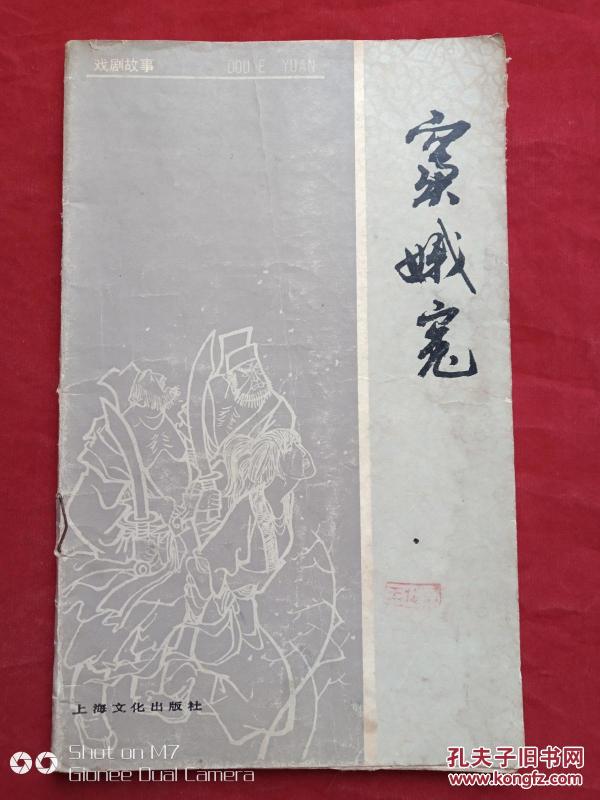 戏剧故事 DOU E YUAN
窦娥冤
上海文化出版社
Shot on M7
Gionee Dual Camera
孔夫子旧书网
www.kongfz.com